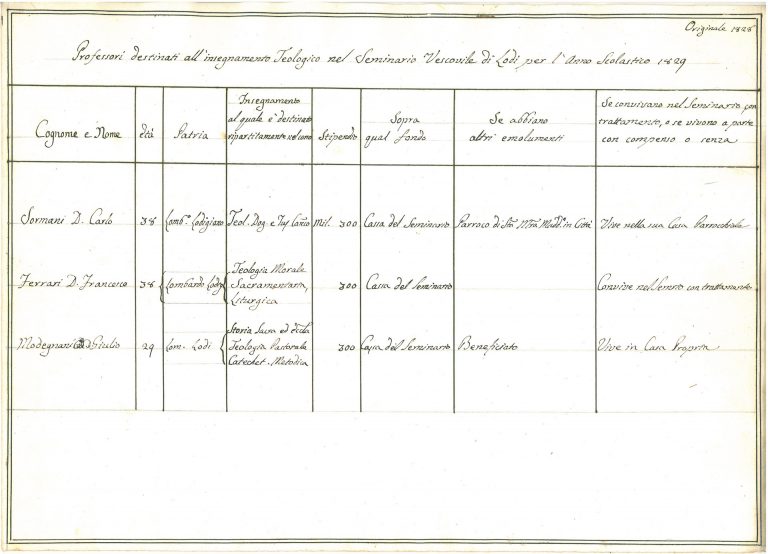 Originale 1828
Professori destinati all'insegnamento Teologico nel Seminario Vescovile di Lodi per l'Anno Scolastico 1829
Cognome e Nome
Età
Patria
Insegnamento
al quale è destinato
ripartitamente nel corso
Stipendio
Sopra
qual fondo
Se abbiano
altri emolumenti
Se convivano nel Seminario con
trattamento, o se vivono a parte
con compenso o senza
Sormani D. Carlo
38
Lomb.º Lodigiano
Teol. Dog. e Jus Can.co
Mil. 300
Cassa del Seminario
Parroco di Sta. Mra. Madd.a in Città
Vive nella sua Casa Parrocchiale
Ferrari D. Francesco
38
Lombardo Lodig
Teologia Morale
Sacramentaria,
Liturgica
300
Cassa del Seminario
Convive nel Semrio con trattamento
Modegnani D. Giulio
29
Lom. Lodi
Storia Sacra ed
Teologia Pastorale
Catechet. Metodica
300
Cassa del Seminario
Beneficiato
Vive in Casa Propria